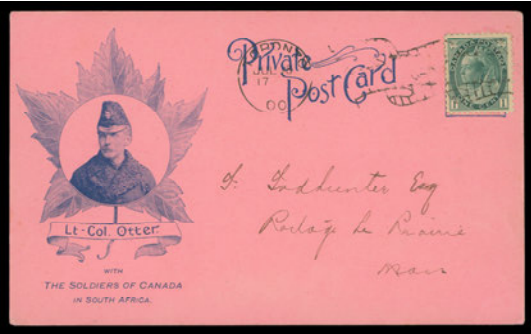 Private
Post Card
TORONTO
17
00
Lt-Col. Otter
WITH
THE SOLDIERS OF CANADA
IN SOUTH AFRICA.
Todhunter Esq
Portage la Prairie
Man